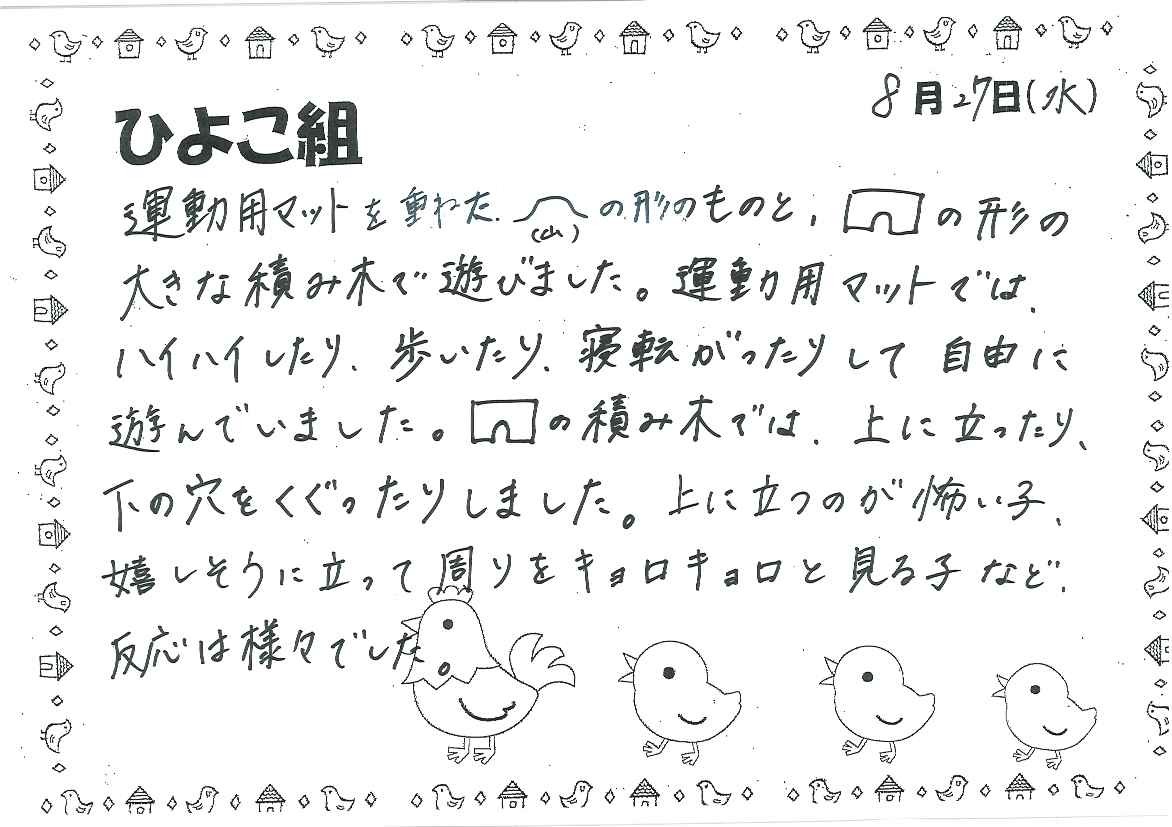 8月27日(水)
ひよこ組
運動用マットを重ねた、(山)の形のものと、の形の
大きな積み木で遊びました。運動用マットでは、
ハイハイしたり、歩いたり、寝転がったりして自由に
遊んでいました。の積み木では、上に立ったり、
下の穴をくぐったりしました。上に立つのが怖い子、
嬉しそうに立って周りをキョロキョロと見る子など、
反応は様々でした。